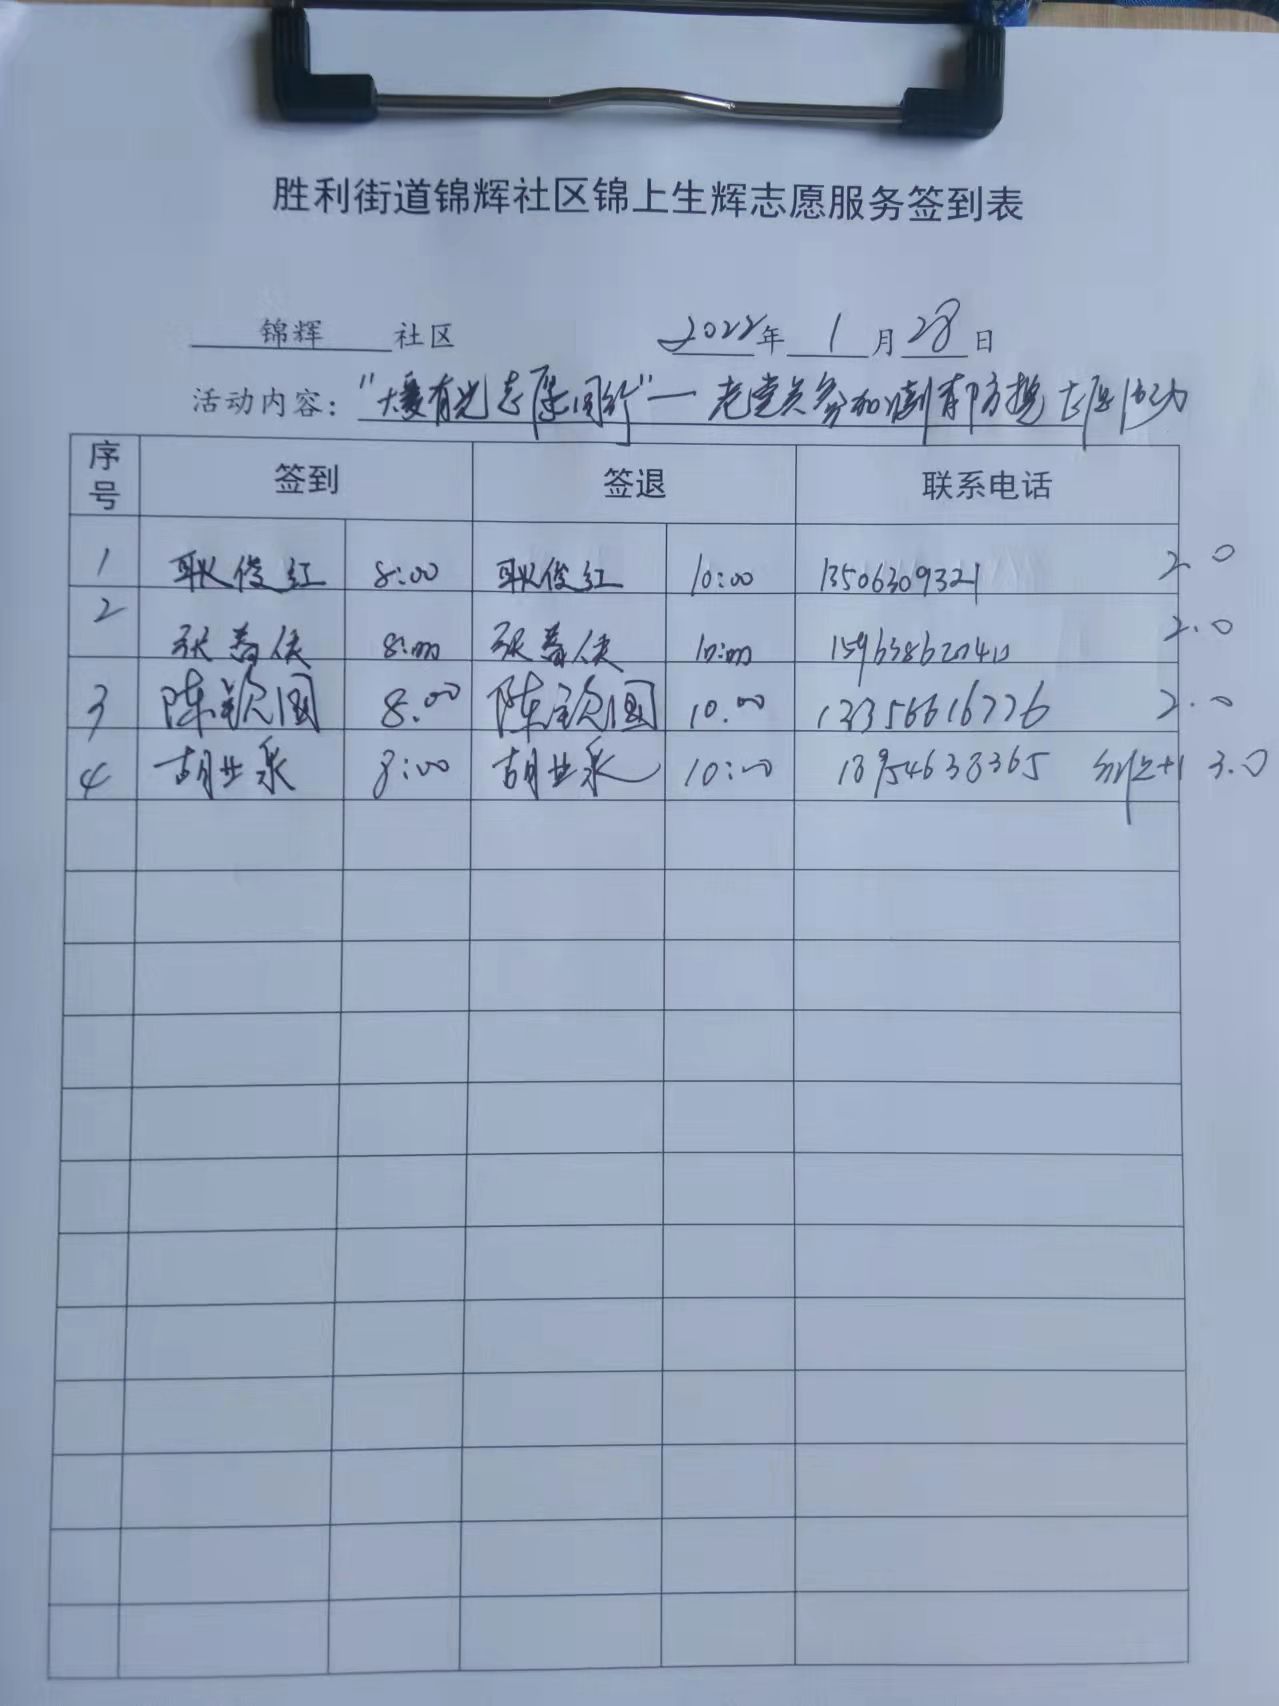 胜利街道锦辉社区锦上生辉志愿服务签到表
锦辉 社区 2022年 1 月 28 日
活动内容："大爱有光 志愿同行"一 老党员参加
序号 签到 签退 联系电话
1 耿俊红 8:00 耿俊红 10:00 13506309321 2.0
2 张春侠 8:00 张春侠 10:00 2.0
3 陈 8.00 陈 10.00 2.0
4 胡业泉 8:00 胡业泉 10:00 18954638365 +1 3.0